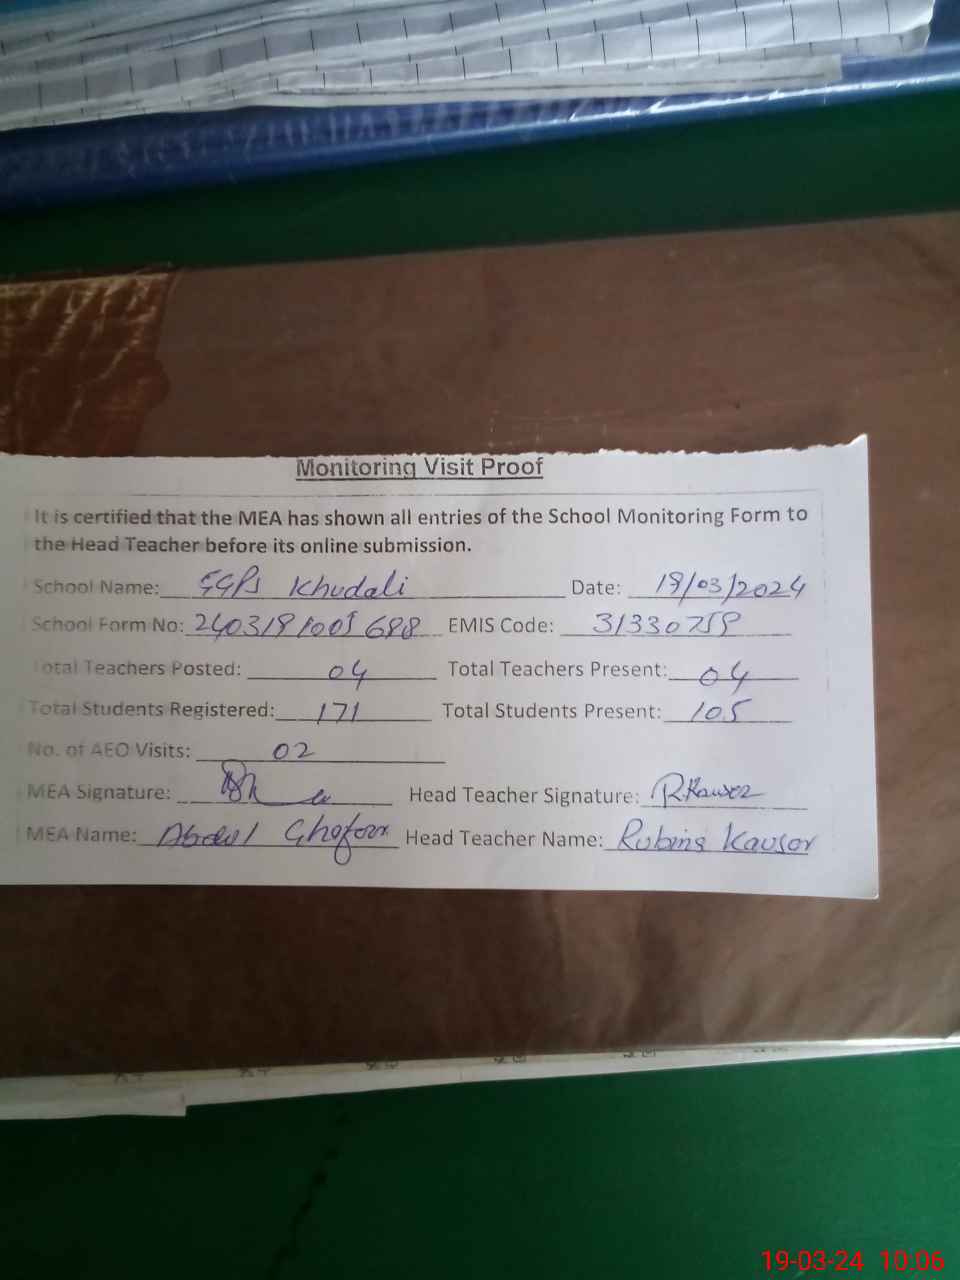 Monitoring Visit Proof
It is certified that the MEA has shown all entries of the School Monitoring Form to
the Head Teacher before its online submission.
School Name: GGPS Khudali Date: 19/03/2024
School Form No: 240319/001688 EMIS Code: 31330759
Total Teachers Posted: 04 Total Teachers Present: 04
Total Students Registered: 171 Total Students Present: 105
No. of AEO Visits: 02
MEA Signature: Head Teacher Signature: R.Kawsor
MEA Name: Abdul Ghafoor Head Teacher Name: Rubina Kausor
19-03-24 10:06